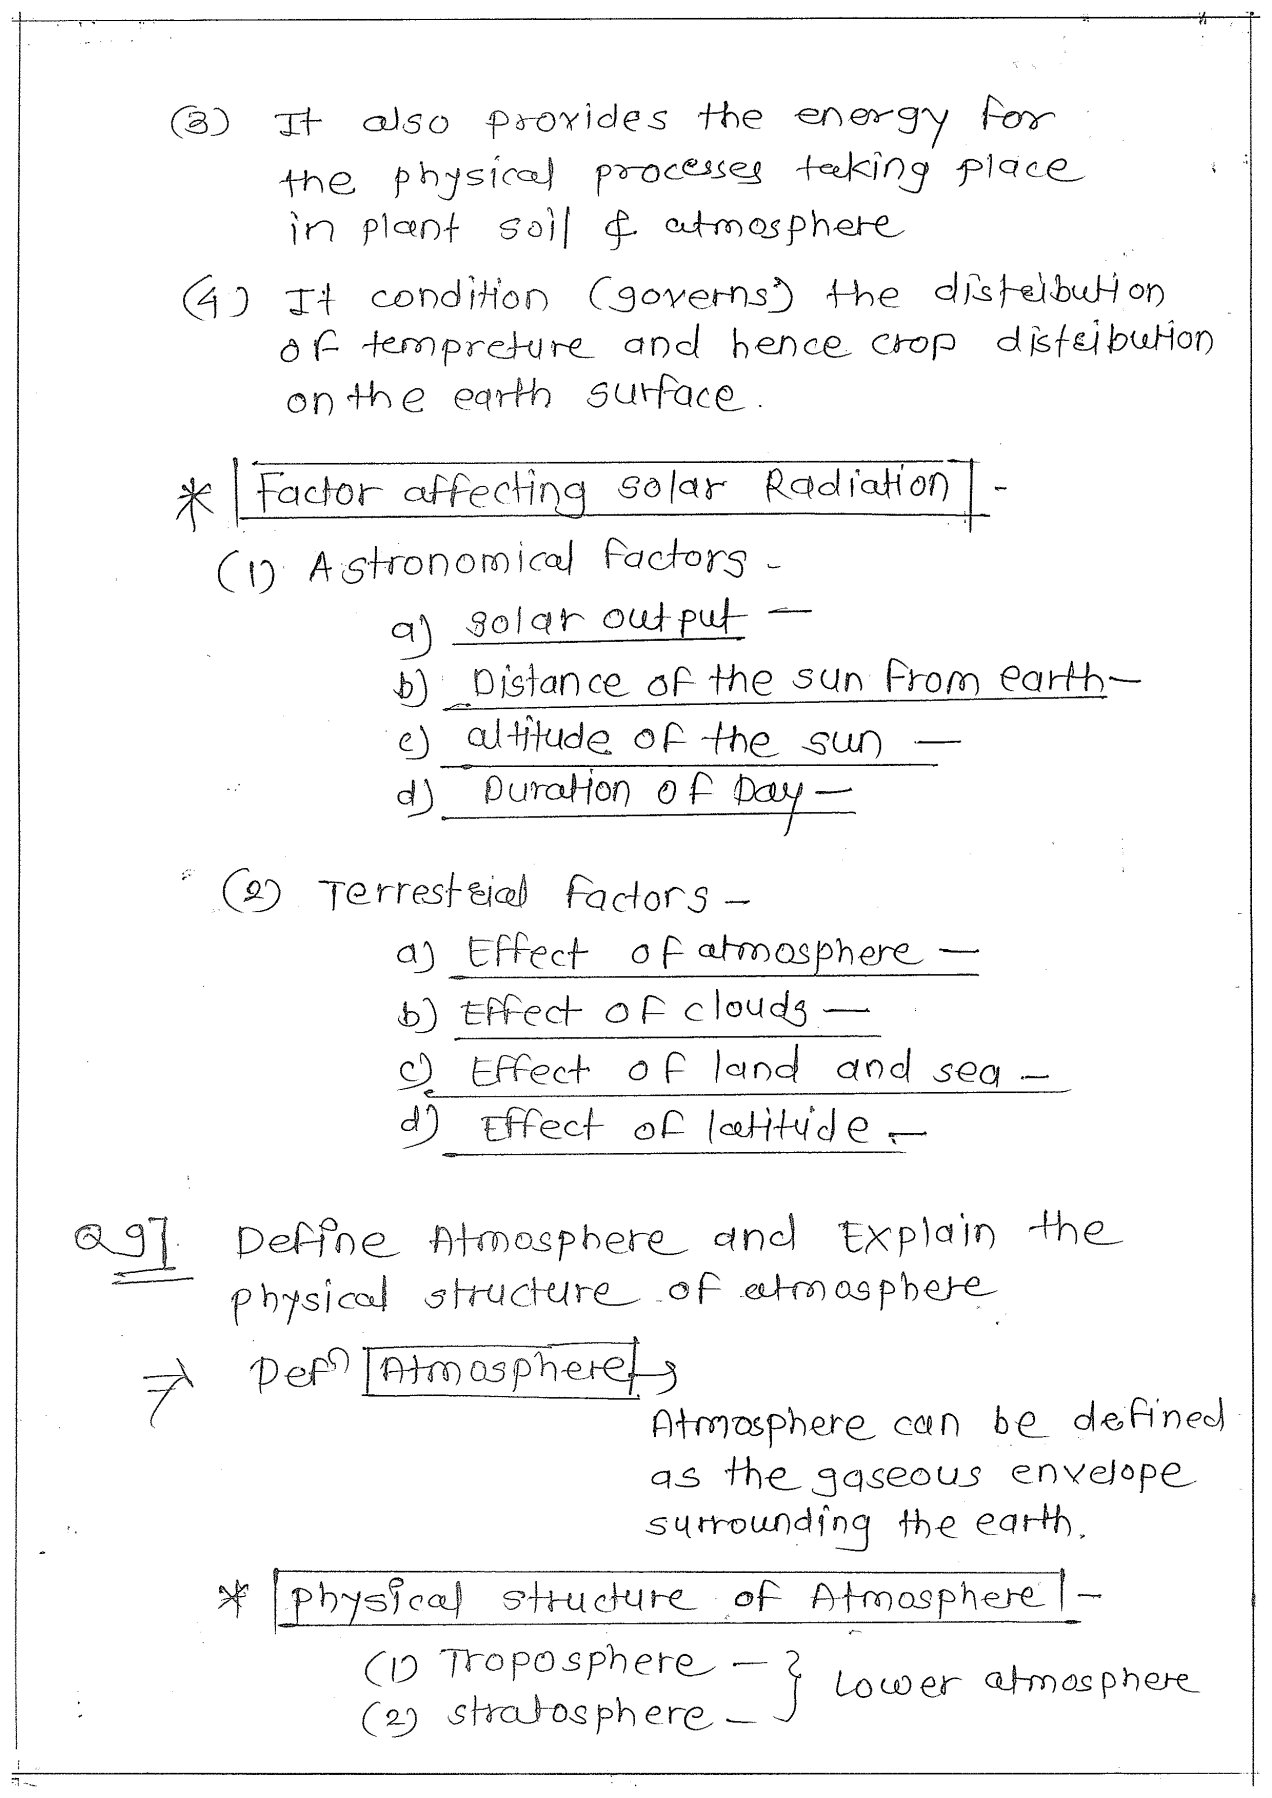 (3) It also provides the energy for
the physical processes taking place
in plant soil & atmosphere
(4) It condition (governs) the distribution
of tempreture and hence crop distribution
on the earth surface.
* Factor affecting solar Radiation -
(1) Astronomical factors -
a) solar output —
b) Distance of the sun from earth —
c) altitude of the sun —
d) Duration of Day —
(2) Terrestrial factors —
a) Effect of atmosphere —
b) Effect of clouds —
c) Effect of land and sea —
d) Effect of latitude —
Q 9] Define Atmosphere and Explain the
physical structure of atmosphere
⇒ Defn Atmosphere →
Atmosphere can be defined
as the gaseous envelope
surrounding the earth.
* physical structure of Atmosphere -
(1) Troposphere — } Lower atmosphere
(2) stratosphere —